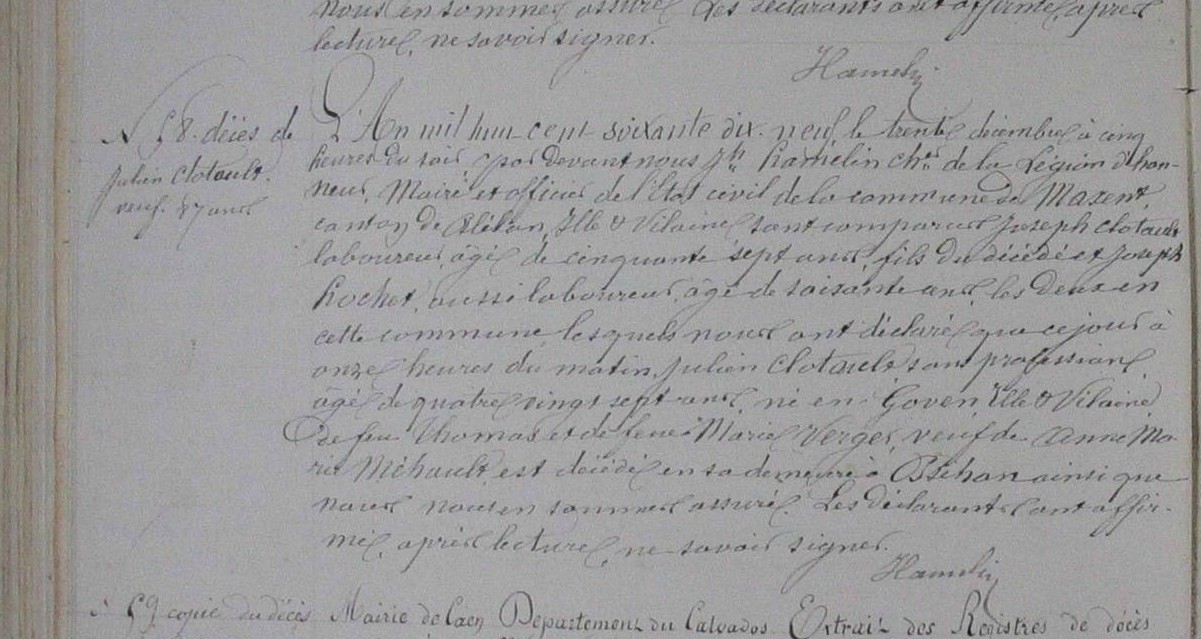 nous en sommes assuré. Les déclarants ont affirmé, après
lecture, ne savoir signer.
Hamelin
N 58. décès de
Julien Clotault.
veuf. 87 ans
L'An mil huit cent soixante dix-neuf le trente décembre à cinq
heures du soir par devant nous Jh Hamelin cher de la Légion d'hon-
neur, Maire et officier de l'Etat civil de la commune de Maxent,
canton de Plélan, Ille & Vilaine, sont comparus Joseph Clotault
laboureur, âgé de cinquante sept ans, fils du décédé et Joseph
Rochet, aussi laboureur, âgé de soixante ans, les deux en
cette commune, lesquels nous ont déclaré que ce jour à
onze heures du matin, Julien Clotault sans profession,
âgé de quatre vingt sept ans, né en Goven, Ille & Vilaine,
De feu Thomas et de feue Marie Verger, veuf de Anne Ma-
rie Méhault, est décédé en sa demeure à ainsi que
nous nous en sommes assuré. Les déclarants ont affir-
mé, après lecture, ne savoir signer.
Hamelin
59 copie du décès
Mairie de Caen Département du Calvados Extrait des Registres de décès